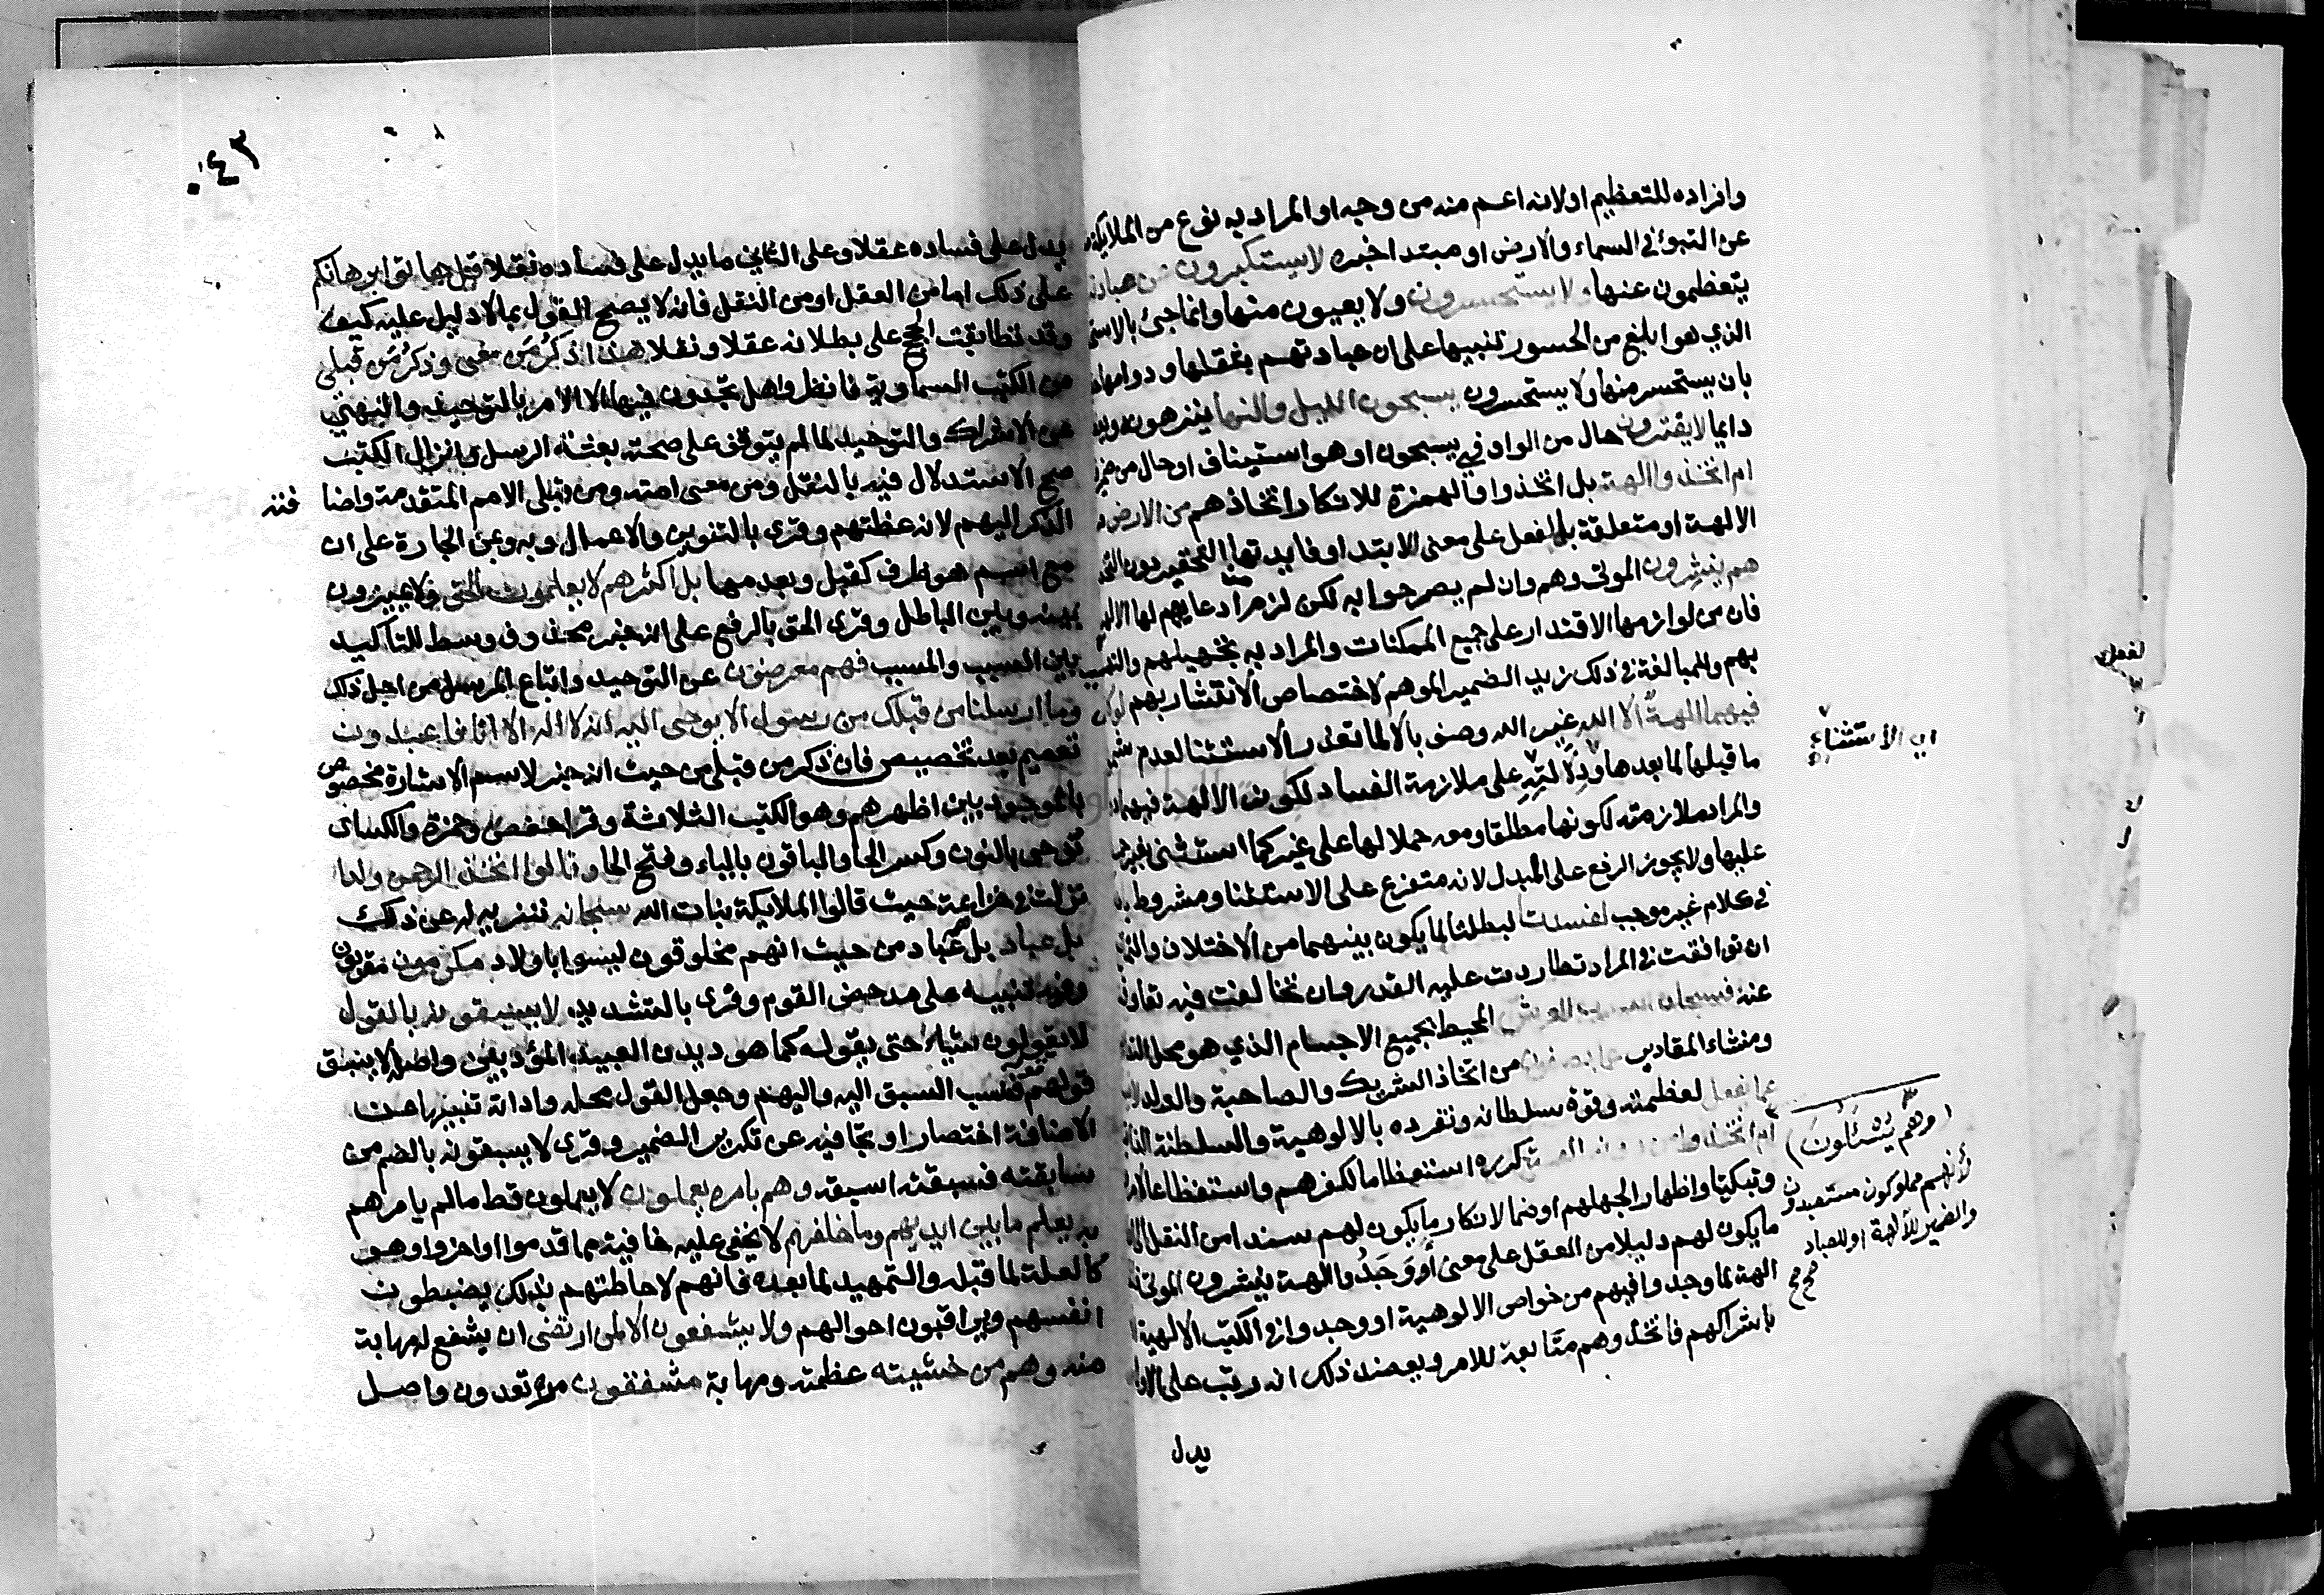 وافراده للتعظيم اولانه اعم منه من وجه او المراد به نوع من الملائكة
عن التبوئ في السماء والارض او مبتدا خبره لا يستكبرون عن عبادته
يتعظمون عنها ولا يستحسرون ولا يعيون منها وانما جئ بالاستحسار
الذي هو ابلغ من الحسور تنبيها على ان عبادتهم بثقلها ودوامها
بان يستحسر منها ولا يستحسرون يسبحون الليل والنهار ينزهونه
دايما لا يفترون حال من الواو في يسبحون او هو استيناف او حال من ضمير
ام اتخذوا الهة بل اتخذوا والهمزة للانكار اتخاذهم من الارض
الالهة او متعلقة بالفعل على معنى الابتدا وفايدتها التحقير دون
هم ينشرون الموتى وهم وان لم يصرحوا به لكن لزم ادعايهم لها
فان من لوازمها الاقتدار على جميع الممكنات والمراد به تجهيلهم والتهكم
بهم وللمبالغة في ذلك زيد الضمير الموهم لاختصاص الانتشار بهم لو كان
فيهما الهة الا الله غير الله وصف بالا لما تعذر الاستثنا لعدم
ما قبلها لما بعدها ودلالته على ملازمة الفساد لكون الالهة فيهما
والمراد ملازمته لكونها مطلقا ومعه حملا لها على غير كما استثنى بغير
عليها ولا يجوز الرفع على البدل لانه متفرع على الاستثنا ومشروط
في كلام غير موجب لفسدتا لبطلتا لما يكون بينهما من الاختلاف
ان توافقت في المراد تطاردت عليه القدر وان تخالفت فيه
عنه فسبحان الله رب العرش المحيط بجميع الاجسام الذي هو محل
ومنشاء المقادير عما يصفون من اتخاذ الشريك والصاحبة والولد
عما يفعل لعظمته وقوة سلطانه وتفرده بالالوهية والسلطنة
ام اتخذوا من دونه الهة كرره استعظاما لكفرهم واستفظاعا
وتبكيتا واظهارا لجهلهم او ضما لانكار ما يكون لهم سندا من النقل
ما يكون لهم دليلا من العقل على معنى أو وجدوا الهة ينشرون الموتى
الهة لما وجدوا فيهم من خواص الالوهية او وجدوا في الكتب الالهية
باشراكهم فاتخذوهم متابعة للامر ويعضد ذلك انه رتب على الاول
يدل
اى الاستثناء
(وهم يسئلون)
لأنهم مملوكون مستعبدون
والضمير للآلهة او للعباد
صح
٠٤٣
يدل على فساده عقلا وعلى الثاني ما يدل على فساده نقلا قل هاتوا برهانكم
على ذلك اما من العقل او من النقل فانه لا يصح القول بما لا دليل عليه كيف
وقد تطابقت الحجج على بطلانه عقلا ونقلا هذا ذكر من معى وذكر من قبلى
من الكتب السماوية فانظروا هل تجدون فيها الا الامر بالتوحيد والنهي
عن الاشراك والتوحيد لما لم يتوقف على صحته بعثة الرسل وانزال الكتب
صح الاستدلال فيه بالنقل ومن معى امته ومن قبلى الامم المتقدمة واضا
فته
الذكر اليهم لانه عظتهم وقرى بالتنوين والاعمال وبه وبمن الجارة على ان
مع اسم هو ظرف كقبل وبعد مها بل اكثرهم لا يعلمون الحق ولا يميزون
بينه وبين الباطل وقرى الحق بالرفع على انه خبر محذوف وسط للتاكيد
بين السبب والمسبب فهم معرضون عن التوحيد واتباع الرسل من اجل ذلك
وما ارسلنا من قبلك من رسول الا يوحى اليه انه لا اله الا انا فاعبدون
تعميم بعد تخصيص فان ذكر من قبلى من حيث انه خبر لاسم الاشارة مخصوص
بالموجود بين اظهرهم وهو الكتب الثلاثة وقرا حفص وحمزة والكساى
نوحى بالنون وكسر الحا والباقون بالياء وفتح الحا وقالوا اتخذ الرحمن ولدا
نزلت في خزاعة حيث قالوا الملايكة بنات الله سبحانه تنزيه له عن ذلك
بل عباد بل هم عباد من حيث انهم مخلوقون ليسوا باولاد مكرمون مقربون
وفيه تنبيه على مدحض القوم وقرى بالتشديد لا يسبقونه بالقول
لا يقولون شيا حتى يقوله كما هو ديدن العبيد المؤدبين واصله لا يسبق
قولهم قوله فنسب السبق اليه واليهم وجعل القول محله واداته تنبيها على
الاضافة اختصارا وتجافيه عن تكرير الضمير وقرى لا يسبقونه بالضم من
سابقته فسبقته اسبقه وهم بامره يعملون لا يعملون قط ما لم يامرهم
به يعلم ما بين ايديهم وما خلفهم لا يخفى عليه خافية مما قدموا واخروا وهو
كالعلة لما قبله والتمهيد لما بعده فانهم لاحاطتهم بذلك يضبطون
انفسهم ويراقبون احوالهم ولا يشفعون الا لمن ارتضى ان يشفع له مهابة
منه وهم من خشيته عظمته ومهابة مشفقون مرتعدون واصل